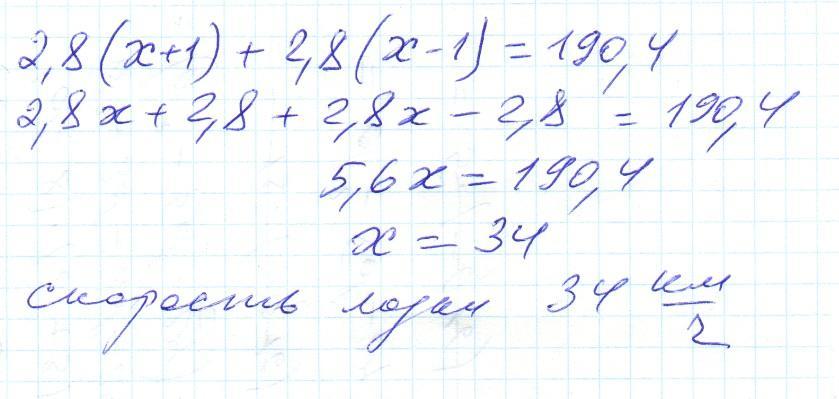 2,8(x+1) + 2,8(x-1) = 190,4
2,8x + 2,8 + 2,8x - 2,8 = 190,4
5,6x = 190,4
x = 34
скорость лодки 34 км/ч